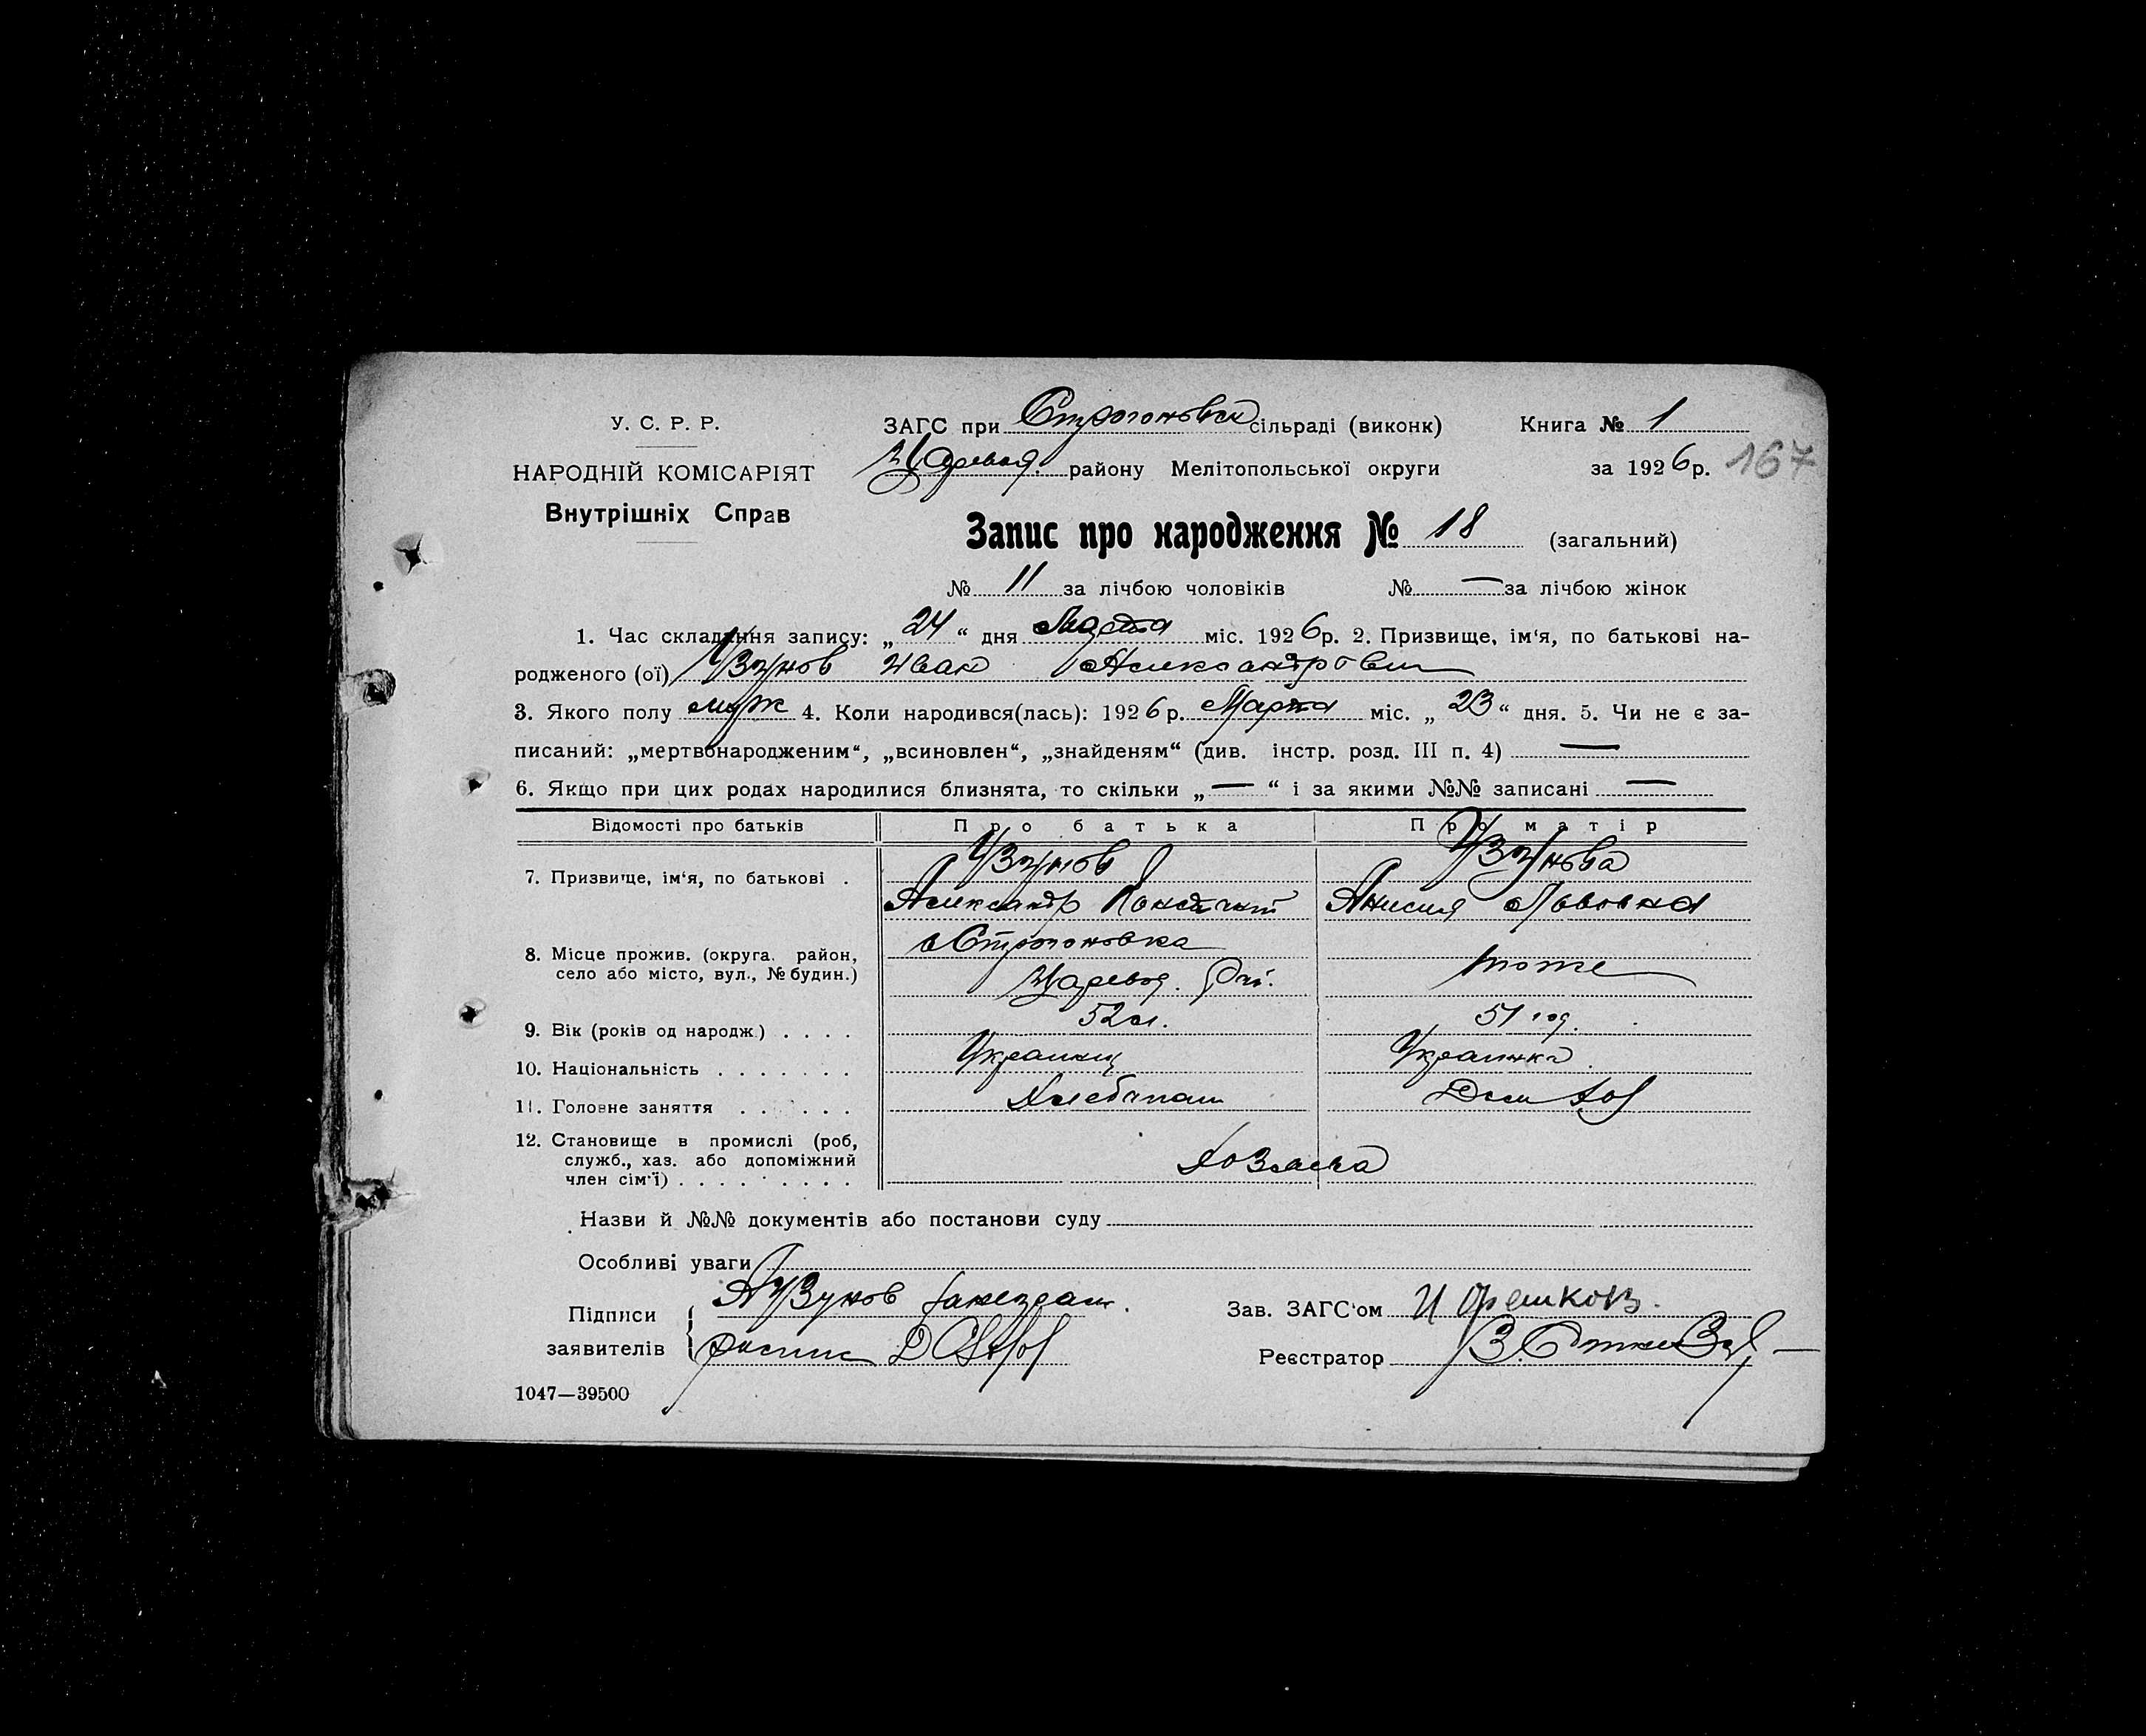 У. С. Р. Р.
ЗАГС при Строгоновск сільраді (виконк) Книга № 1
НАРОДНІЙ КОМІСАРІЯТ
Царевод. району Мелітопольської округи за 1926 р. 167
Внутрішніх Справ
Запис про народження № 18 (загальний)
№ 11 за лічбою чоловіків № — за лічбою жінок
1. Час складання запису: „24“ дня Марта міс. 1926 р. 2. Призвище, ім‘я, по батькові на-
родженого (ої) Узунов Иван Александрович
3. Якого полу муж 4. Коли народився(лась): 1926 р. Марта міс. „23“ дня. 5. Чи не є за-
писаний: „мертвонародженим“, „всиновлен“, „знайденям“ (див. інстр. розд. III п. 4) —
6. Якщо при цих родах народилися близнята, то скільки „—“ і за якими №№ записані —
Відомості про батьків Про батька Про матір
7. Призвище, ім‘я, по батькові . Узунов Узунова
Александр Анисия Львовна
8. Місце прожив. (округа, район, с Строгоновка
село або місто, вул., № будин.) Царевод. тоже
9. Вік (років од народж.) . . . . 52 л. 51 год.
10. Національність . . . . . . . Украинец Украинка
11. Головне заняття . . . . . . Хлебопаш Дом хоз
12. Становище в промислі (роб,
служб., хаз. або допоміжний Хозяева
член сім‘ї) . . . . . . . . .
Назви й №№ документів або постанови суду
Особливі уваги
Підписи А Узунов Зав. ЗАГС‘ом И Орешков
заявителів Реєстратор
1047—39500